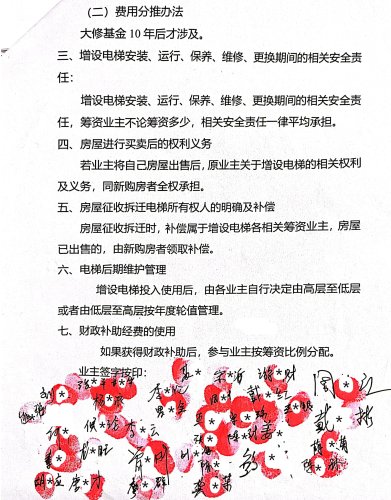 （二）费用分推办法
大修基金 10 年后才涉及。
三、增设电梯安装、运行、保养、维修、更换期间的相关安全责
任：
增设电梯安装、运行、保养、维修、更换期间的相关安全责
任，筹资业主不论筹资多少，相关安全责任一律平均承担。
四、房屋进行买卖后的权利义务
若业主将自己房屋出售后，原业主关于增设电梯的相关权利
及义务，同新购房者全权承担。
五、房屋征收拆迁电梯所有权人的明确及补偿
房屋征收拆迁时，补偿属于增设电梯各相关筹资业主，房屋
已出售的，由新购房者领取补偿。
六、电梯后期维护管理
增设电梯投入使用后，由各业主自行决定由高层至低层
或者由低层至高层按年度轮值管理。
七、财政补助经费的使用
如果获得财政补助后，参与业主按筹资比例分配。
业主签字按印：